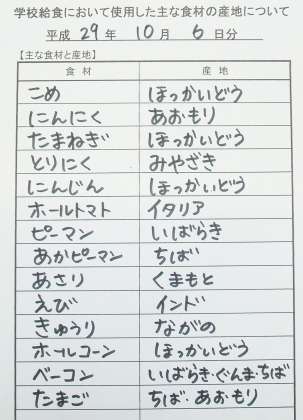 学校給食において使用した主な食材の産地について
平成 29 年 10 月 6 日分
【主な食材と産地】
食材 産地
こめ ほっかいどう
にんにく あおもり
たまねぎ ほっかいどう
とりにく みやざき
にんじん ほっかいどう
ホールトマト イタリア
ピーマン いばらき
あかピーマン ちば
あさり くまもと
えび インド
きゅうり ながの
ホールコーン ほっかいどう
ベーコン いばらき・ぐんま・ちば
たまご ちば・あおもり